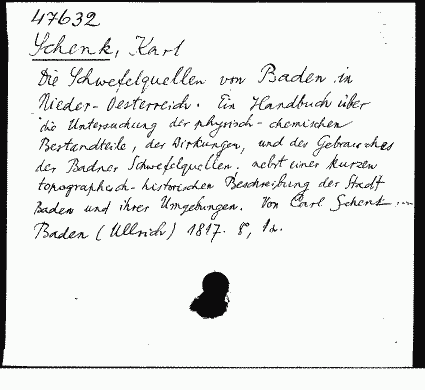 47632
Schenk, Karl
Die Schwefelquellen von Baden in
Nieder-Oesterreich. Ein Handbuch über
die Untersuchung der physisch-chemischen
Bestandteile, der Wirkungen, und des Gebrauches
der Badner Schwefelquellen. nebst einer kurzen
topographisch-historischen Beschreibung der Stadt
Baden und ihrer Umgebungen. Von Carl Schenk ...
Baden (Ullrich) 1817. 8°,